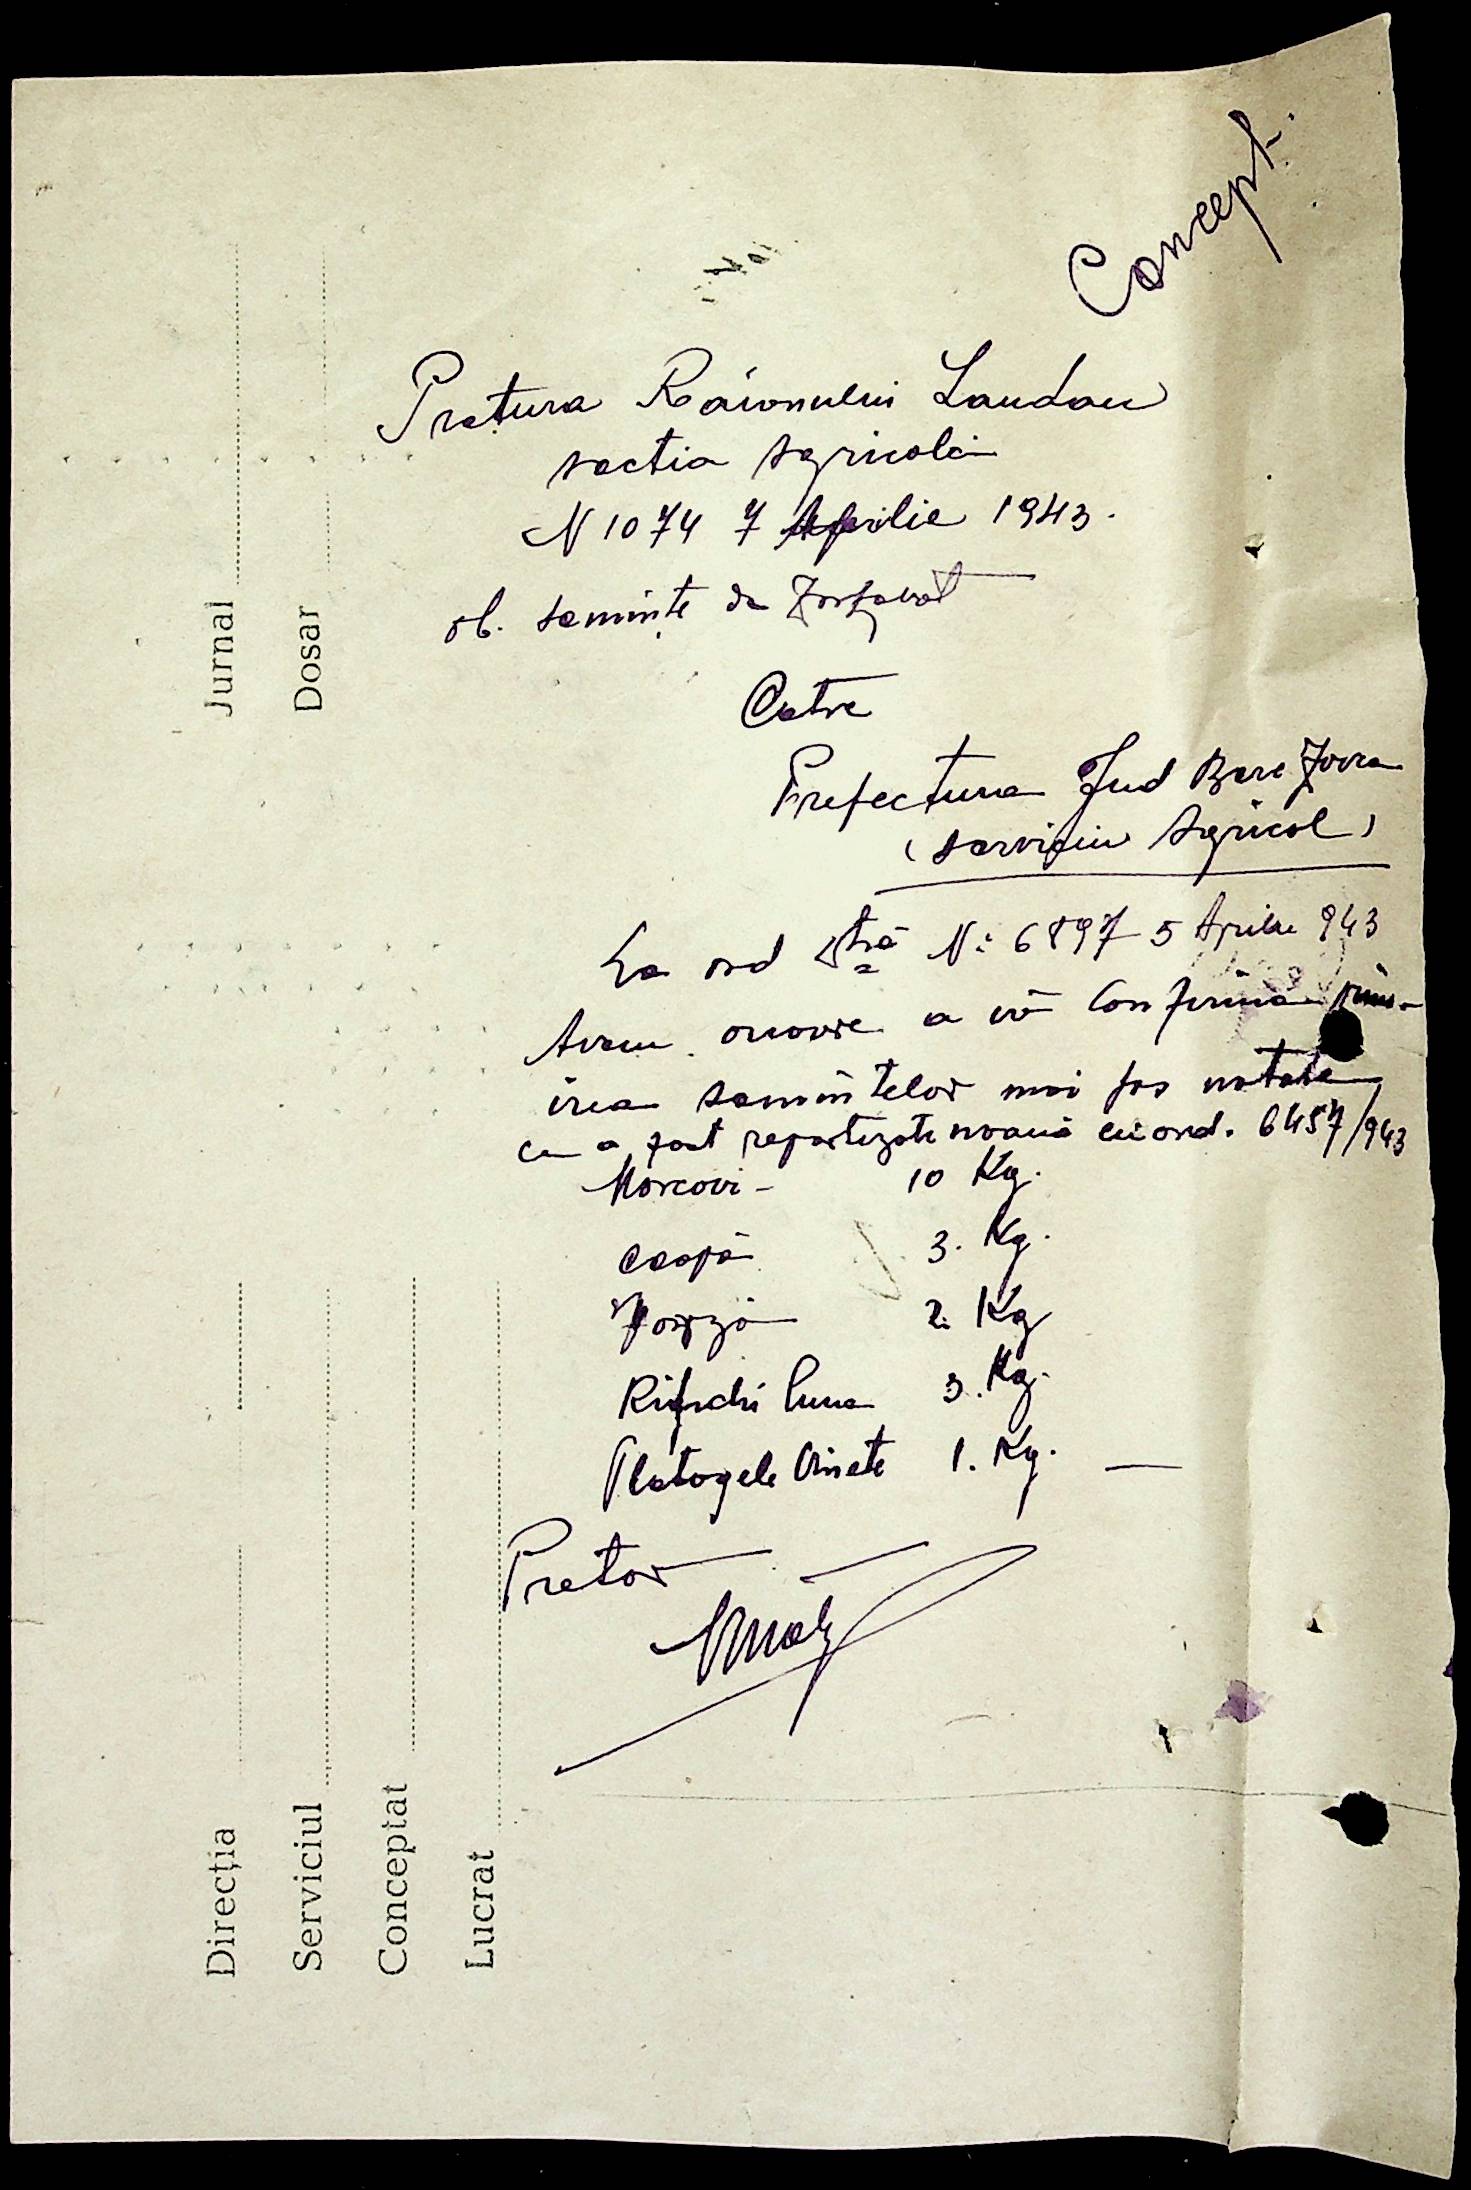 Concept.
Pretura Raionului Landau
sectia Agricolă
N 1074 7 Aprilie 1943.
ob. seminte de Zarzavat
Catre
Prefectura Jud Bere Zovca
(serviciu Agricol)
La ord Dtră N: 6897 5 Aprilie 943
Avem onoare a vă Confirma prim-
irea semintelor mai jos notate
ce a fost repartizate nouă cu ord. 6457/943
Morcovi - 10 Kg.
Ceapă 3. Kg.
Varză 2. Kg
Ridichi luna 3. Kg.
Platagele Vinete 1. Kg. —
Pretor
Jurnal
Dosar
Direcția
Serviciul
Conceptat
Lucrat